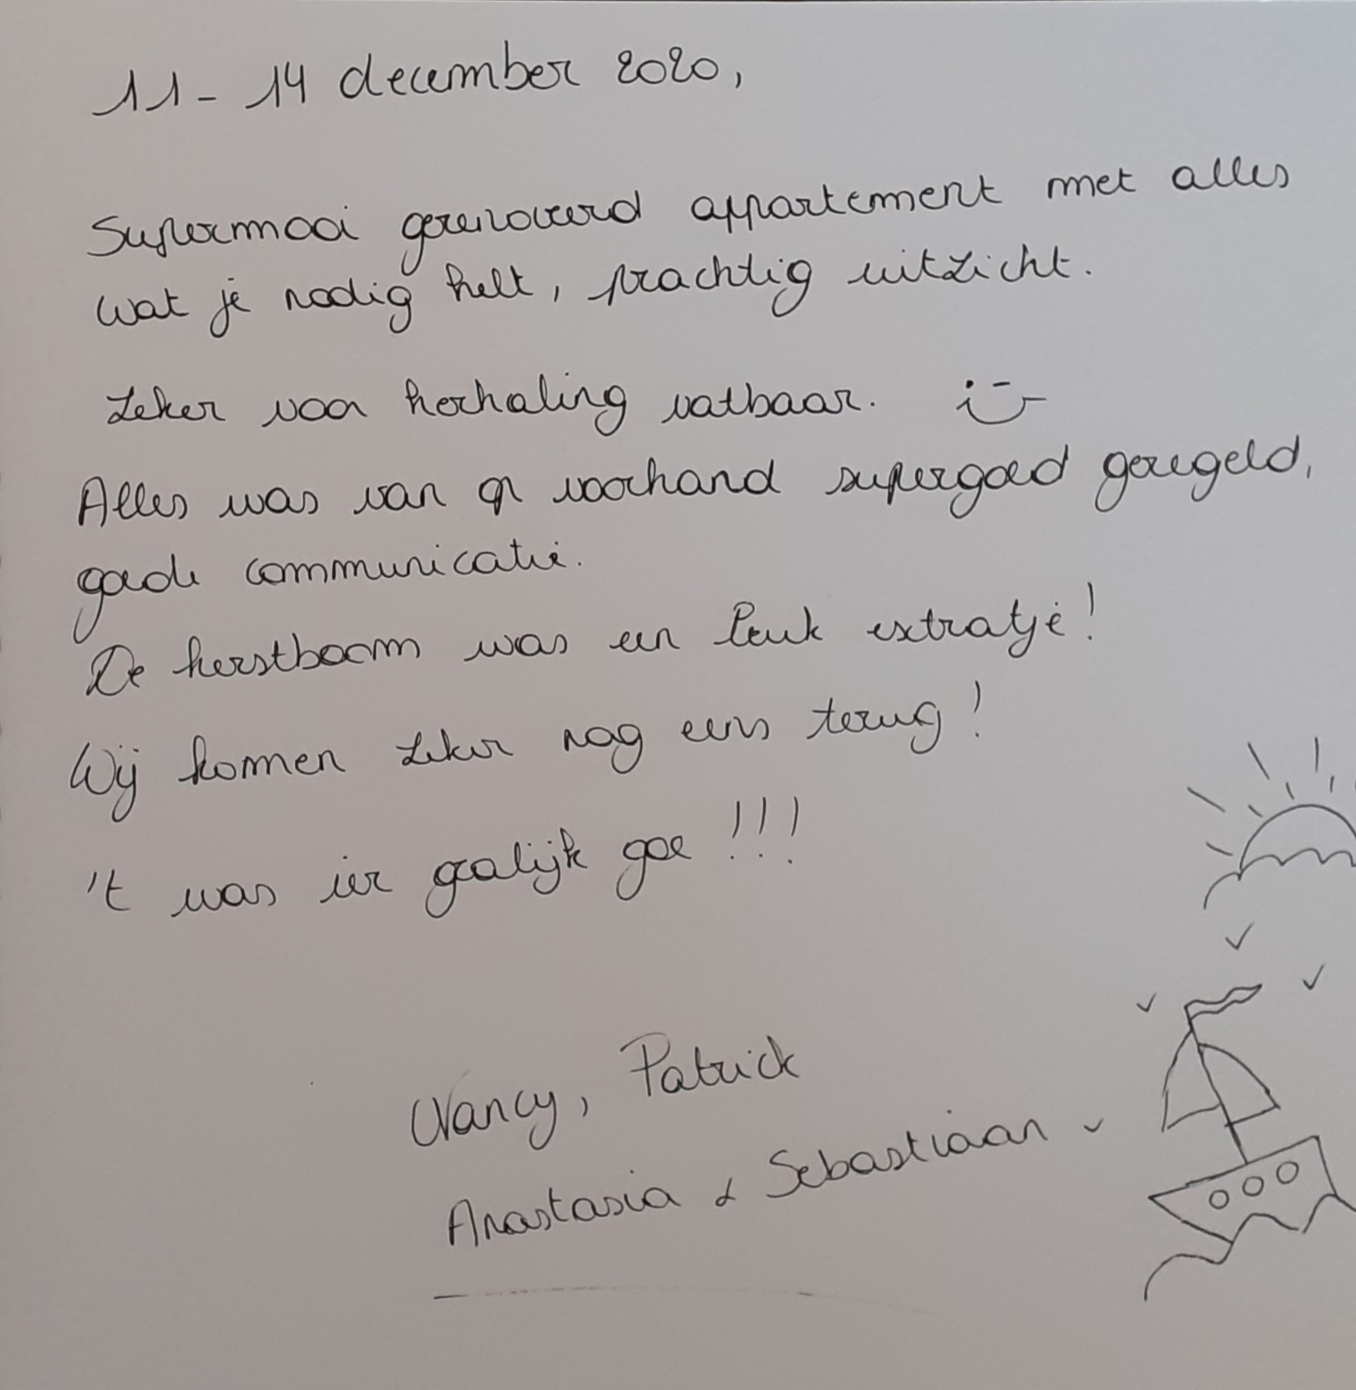 11 - 14 december 2020,
Supermooi gerenoveerd appartement met alles
wat je nodig hebt, prachtig uitzicht.
Zeker voor herhaling vatbaar. :-)
Alles was van op voorhand supergoed geregeld,
goede communicatie.
De kerstboom was een leuk extratje!
Wij komen zeker nog eens terug!
't was ier gralijk goe !!!
Nancy, Patrick
Anastasia & Sebastiaan